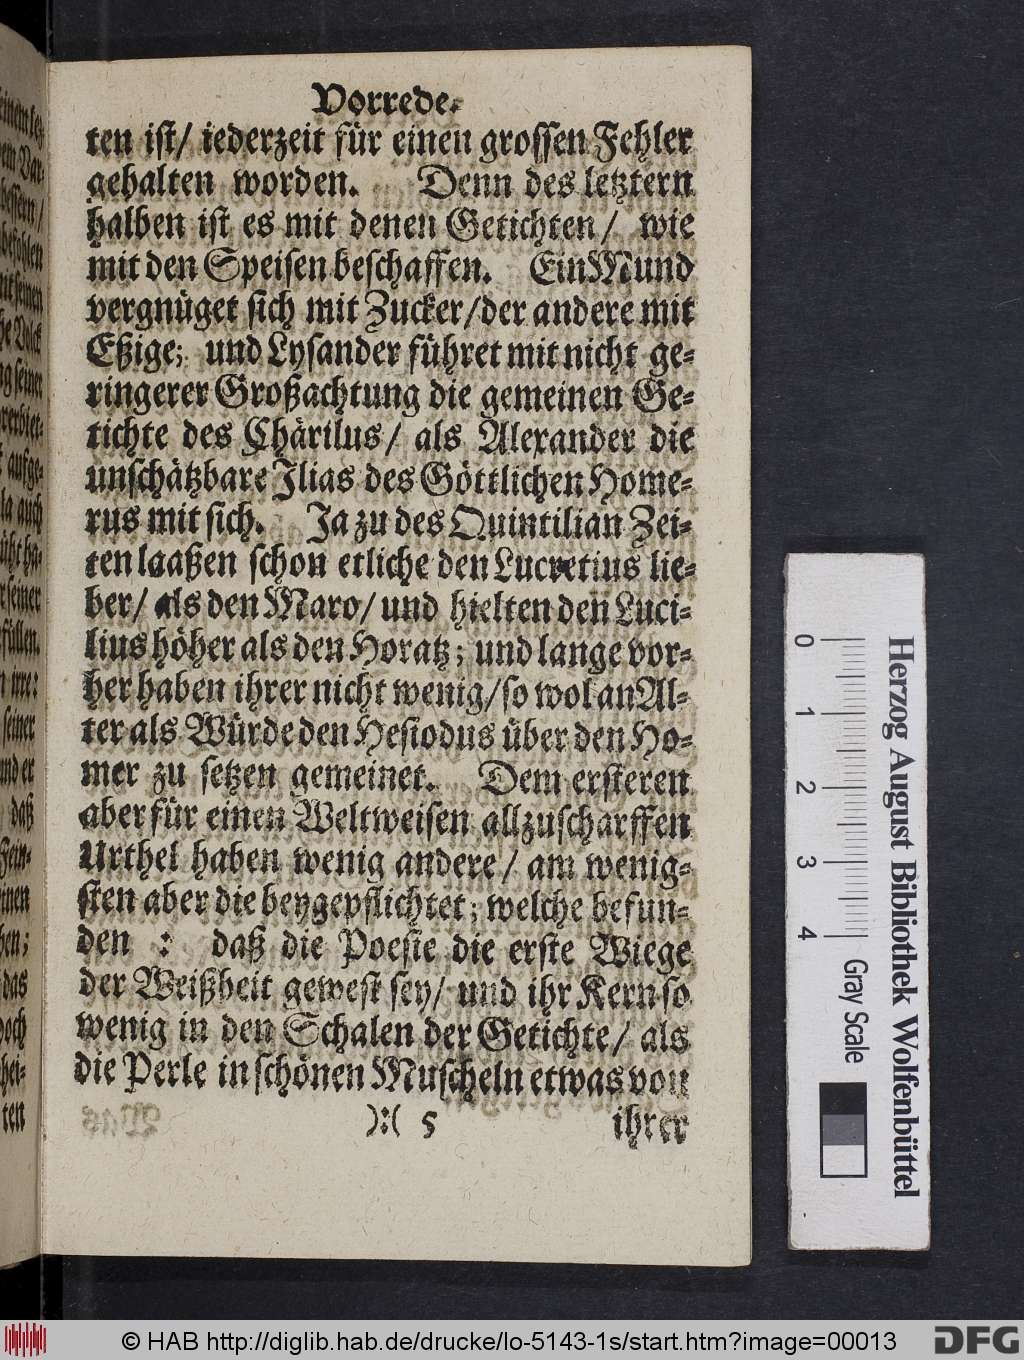 Vorrede.
ten ist/ iederzeit für einen grossen Fehler
gehalten worden. Denn des letztern
halben ist es mit denen Getichten/ wie
mit den Speisen beschaffen. Ein Mund
vergnüget sich mit Zucker/der andere mit
Eßige; und Lysander führet mit nicht ge-
ringerer Großachtung die gemeinen Ge-
tichte des Chärilus/ als Alexander die
unschätzbare Ilias des Göttlichen Home-
rus mit sich. Ja zu des Quintilian Zei-
ten laaßen schon etliche den Lucretius lie-
ber/ als den Maro/ und hielten den Luci-
lius höher als den Horatz; und lange vor-
her haben ihrer nicht wenig/so wol an Al-
ter als Würde den Hesiodus über den Ho-
mer zu setzen gemeinet. Dem ersteren
aber für einen Weltweisen allzuscharffen
Urthel haben wenig andere/ am wenig-
sten aber die beygepflichtet; welche befun-
den : daß die Poesie die erste Wiege
der Weißheit gewest sey/ und ihr Kern so
wenig in den Schalen der Getichte/ als
die Perle in schönen Muscheln etwas von
):( 5 ihrer
0 1 2 3 4
Gray Scale
Herzog August Bibliothek Wolfenbüttel
© HAB http://diglib.hab.de/drucke/lo-5143-1s/start.htm?image=00013
DFG